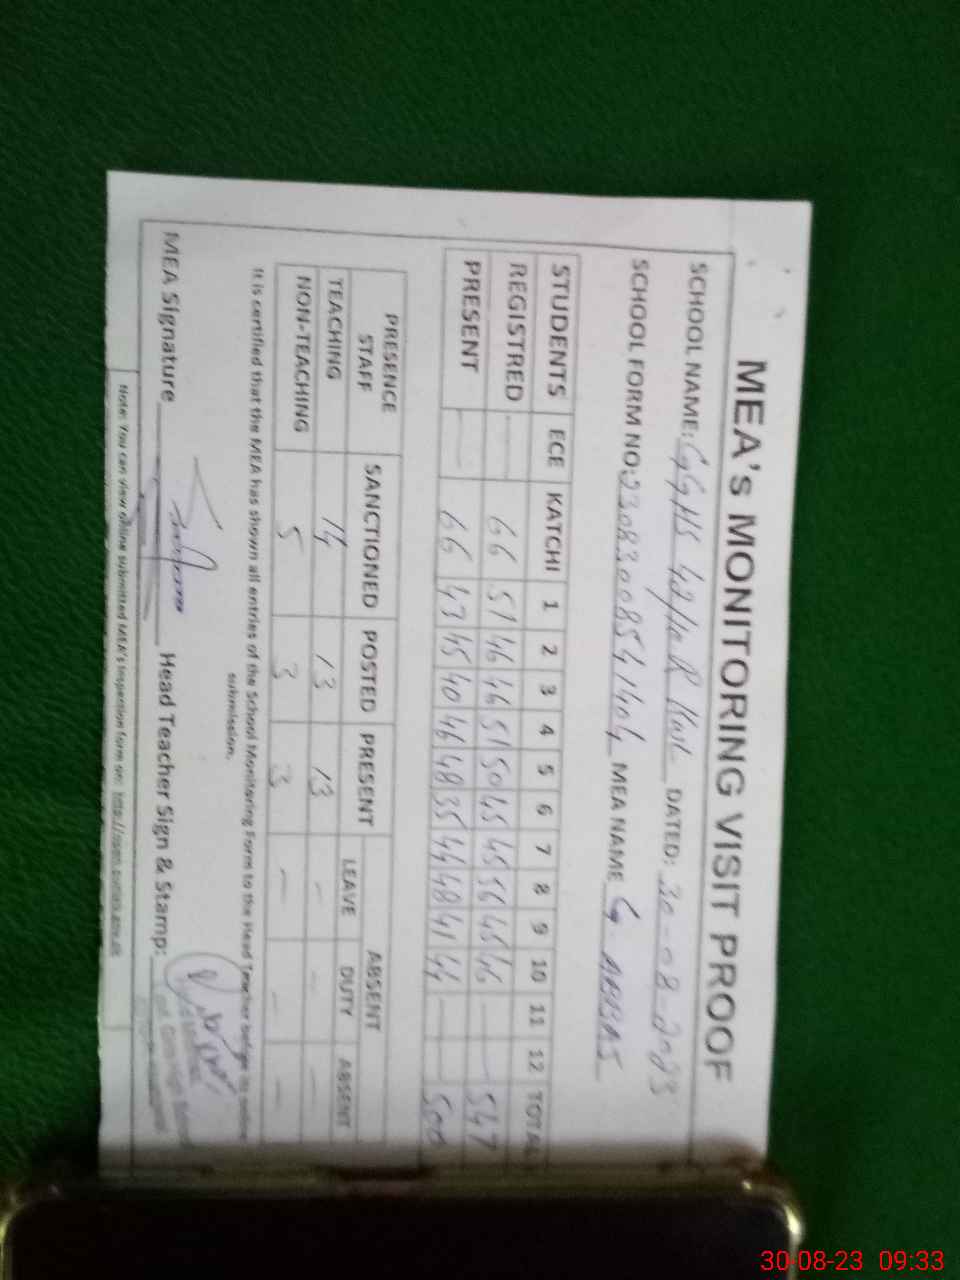 MEA's MONITORING VISIT PROOF
SCHOOL NAME: GGHS 42/12 R DATED: 30-08-2023
SCHOOL FORM NO: 23083008541404 MEA NAME G. ABBAS
STUDENTS ECE KATCHI 1 2 3 4 5 6 7 8 9 10 11 12 TOTAL
REGISTRED — 66 51 46 46 51 50 45 45 56 45 46 — — 547
PRESENT — 66 43 45 40 46 48 35 44 48 41 44 — — 500
PRESENCE STAFF SANCTIONED POSTED PRESENT ABSENT
LEAVE DUTY ABSENT
TEACHING 14 13 13 - - -
NON-TEACHING 5 3 3 - - -
It is certified that the MEA has shown all entries of the School Monitoring Form to the Head Teacher before its online
submission.
MEA Signature Head Teacher Sign & Stamp:
Note: You can view online submitted MEA's Inspection form on:
30-08-23 09:33